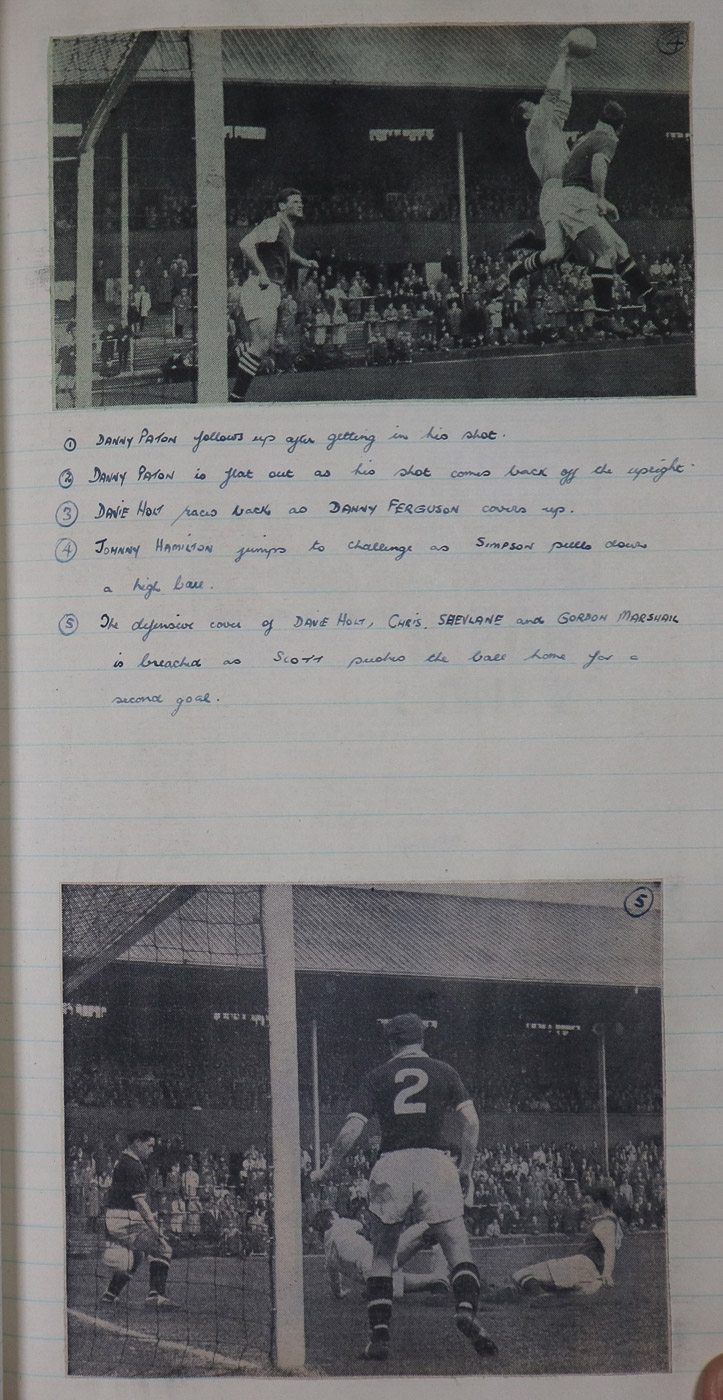 4
① DANNY PATON follows up after getting in his shot.
② DANNY PATON is flat out as his shot comes back off the upright.
③ DAVIE HOLT races back as DANNY FERGUSON covers up.
④ JOHNNY HAMILTON jumps to challenge as SIMPSON pulls down
a high ball.
⑤ The defensive cover of DAVIE HOLT, CHRIS. SHEVLANE and GORDON MARSHALL
is breached as SCOTT pushes the ball home for a
second goal.
5
2